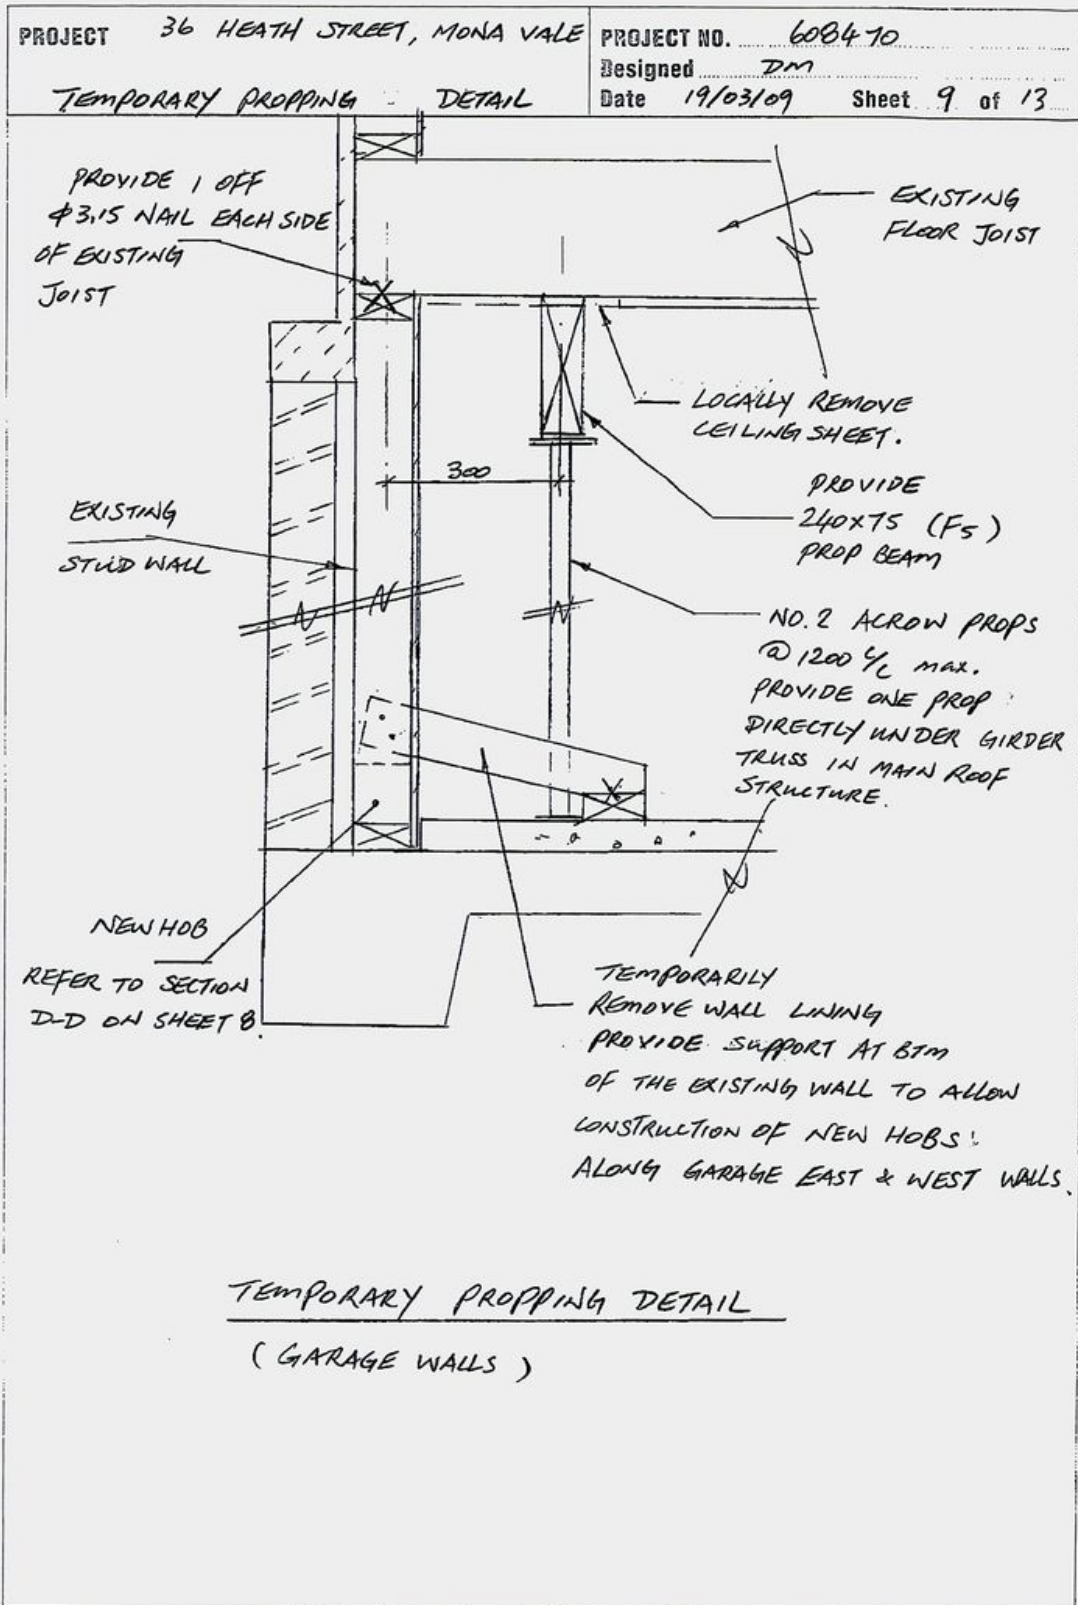 PROJECT 36 HEATH STREET, MONA VALE
TEMPORARY PROPPING - DETAIL
PROJECT NO. 608470
Designed DM
Date 19/03/09 Sheet 9 of 13
PROVIDE 1 OFF
φ3.15 NAIL EACH SIDE
OF EXISTING
JOIST
EXISTING
FLOOR JOIST
LOCALLY REMOVE
CEILING SHEET.
300
PROVIDE
240x75 (F5)
PROP BEAM
EXISTING
STUD WALL
NO.2 ACROW PROPS
@ 1200 c/c max.
PROVIDE ONE PROP
DIRECTLY UNDER GIRDER
TRUSS IN MAIN ROOF
STRUCTURE.
NEW HOB
REFER TO SECTION
D-D ON SHEET 8.
TEMPORARILY
REMOVE WALL LINING
PROVIDE SUPPORT AT BTM
OF THE EXISTING WALL TO ALLOW
CONSTRUCTION OF NEW HOBS
ALONG GARAGE EAST & WEST WALLS.
TEMPORARY PROPPING DETAIL
(GARAGE WALLS)